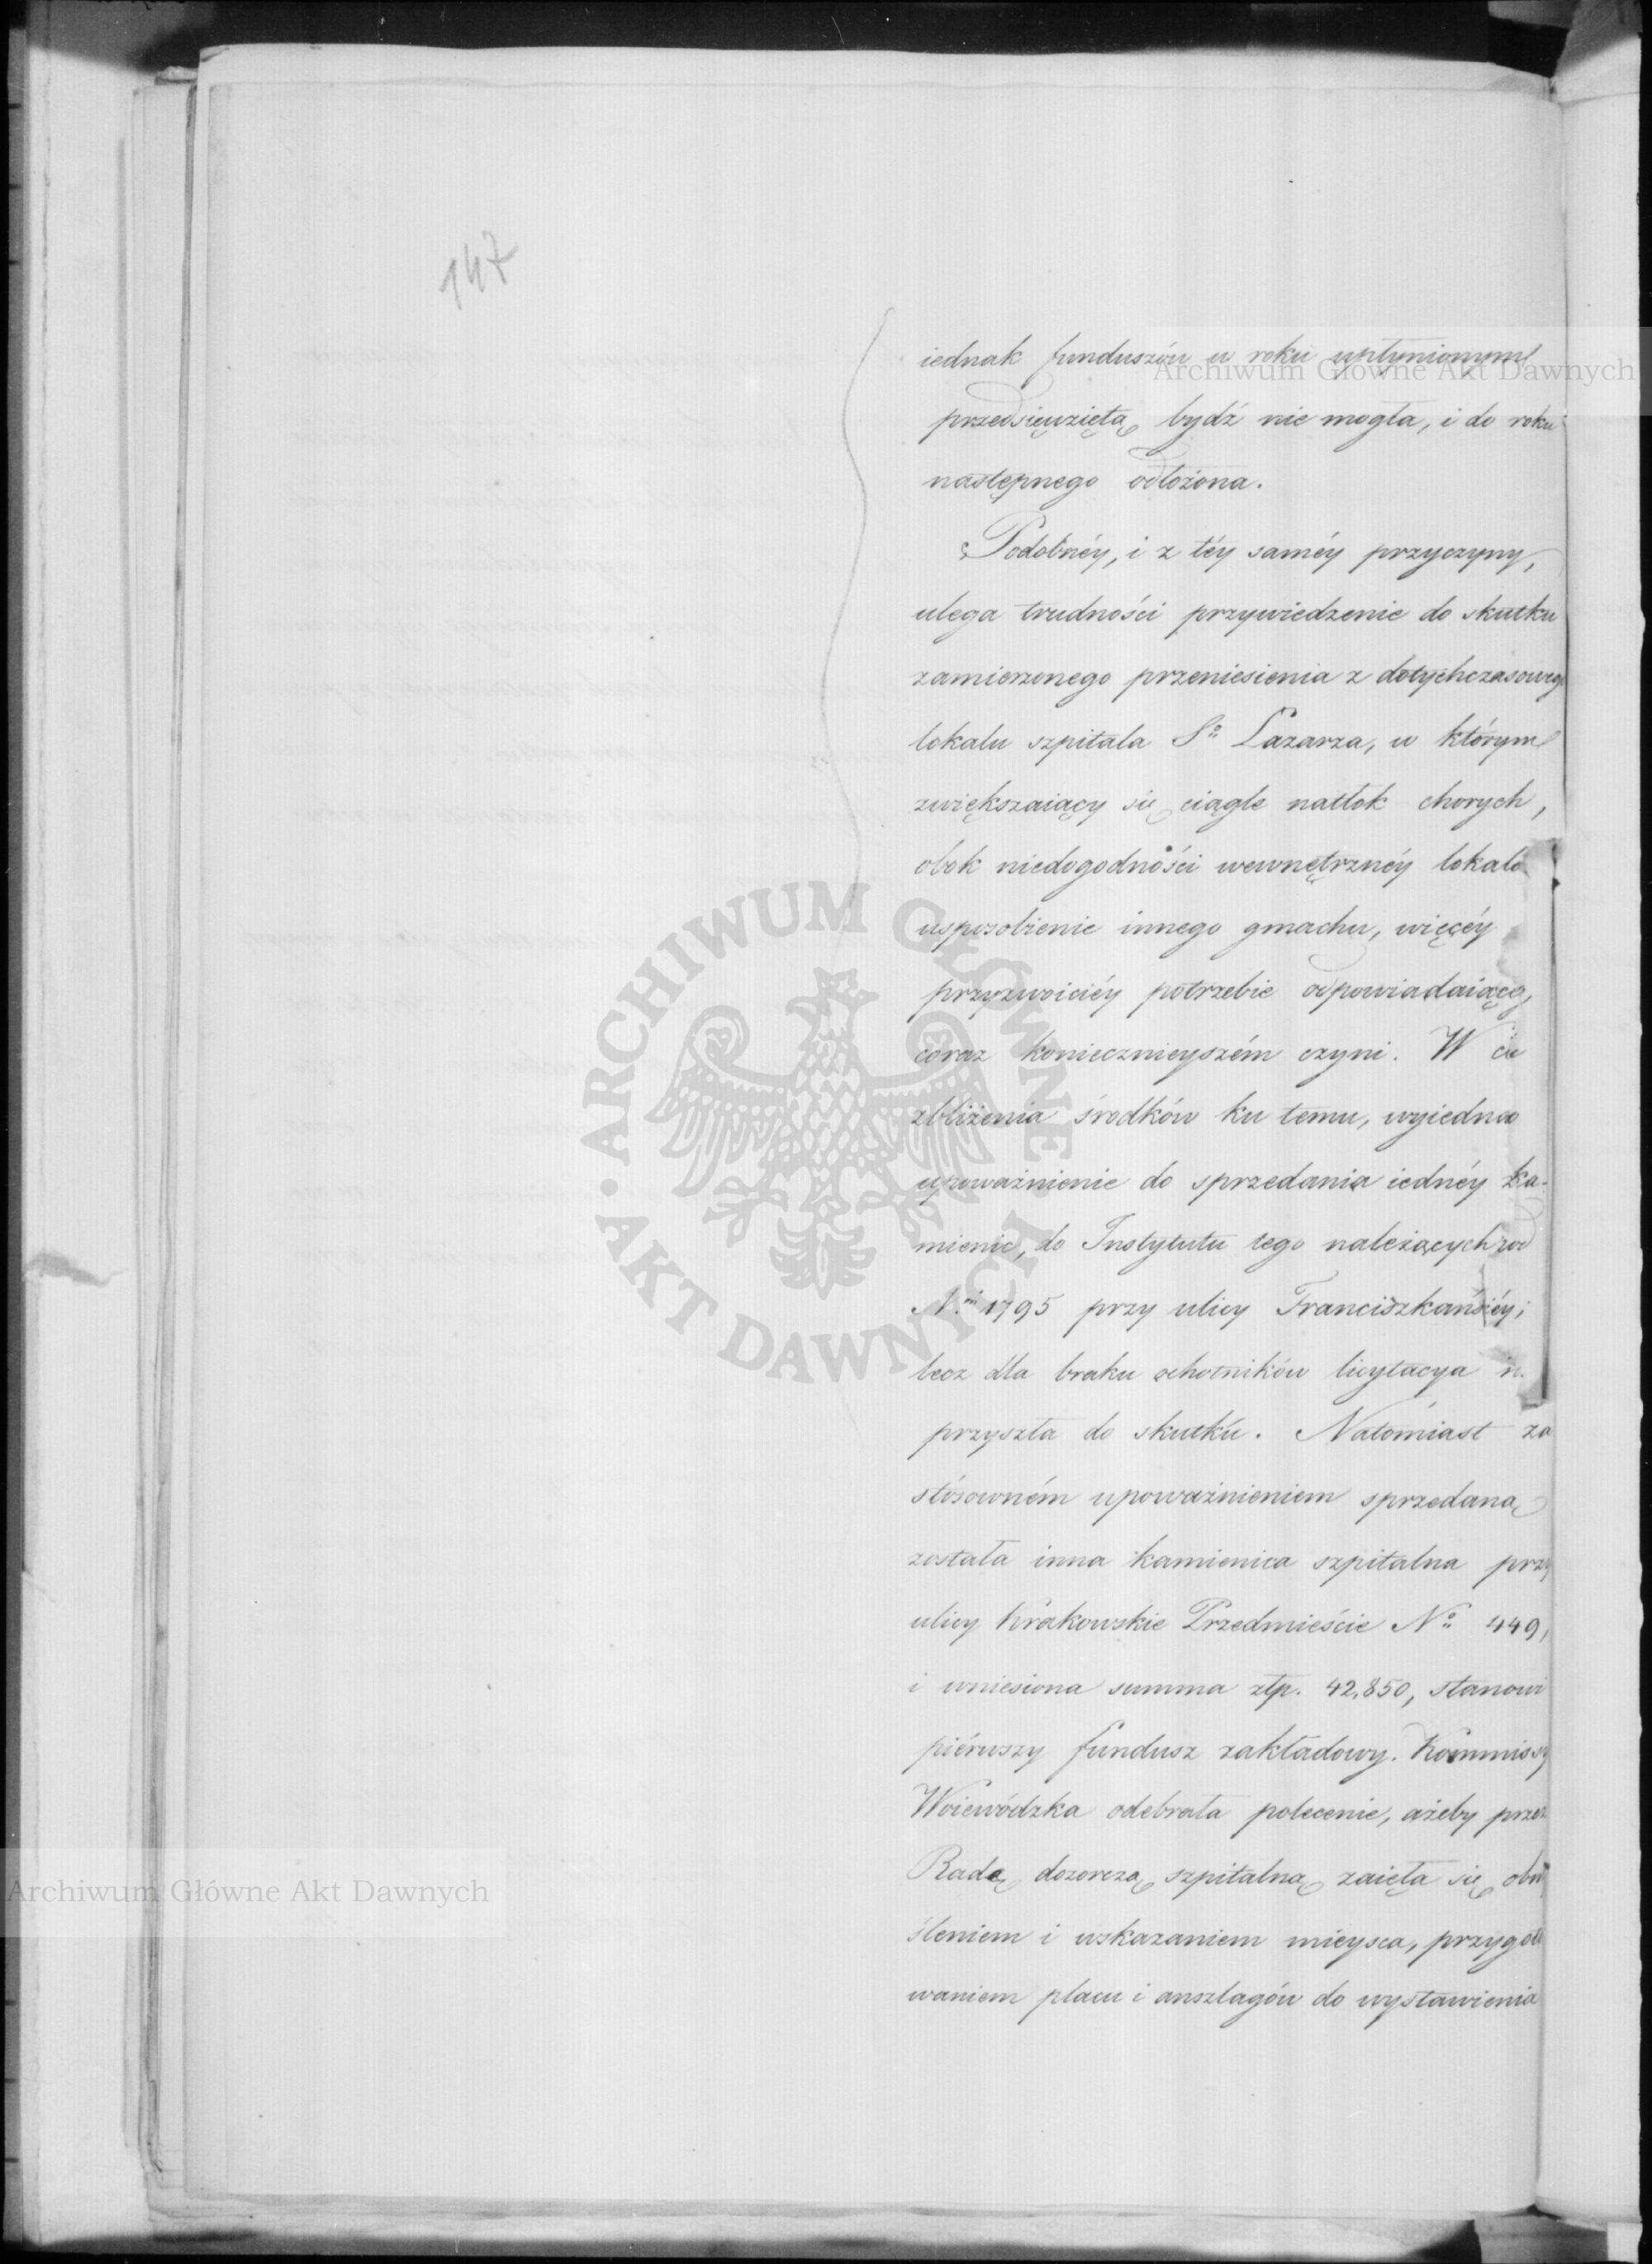 147
iednak funduszów w roku upłynionym
Archiwum Główne Akt Dawnych
przedsięwziętą bydź nie mogła, i do roku
następnego odłożona.
Podobnéy, i z téy saméy przyczyny,
ulega trudności przywiedzenie do skutku
zamierzonego przeniesienia z dotychczasowego
lokalu szpitala Sº Łazarza, w którym
zwiększaiący się ciągle natłok chorych,
obok niedogodności wewnętrznéy lokalo
usposobienie innego gmachu, więcéy
przyzwoiciéy potrzebie odpowiadaiącég
coraz koniecznieyszém czyni. W ce
zbliżenia środków ku temu, wyiedna
upoważnienie do sprzedania iednéy ka-
mienic, do Instytutu tego należących pod
Nm 1795 przy ulicy Franciszkańskiéy;
lecz dla braku ochotników licytacya n
przyszła do skutku. Natomiast za
stósowném upoważnieniem sprzedaną
została inna kamienica szpitalna przy
ulicy Krakowskie Przedmieście Nº 449,
i wniesiona summa złp. 42,850, stanowi
piérwszy fundusz zakładowy. Kommissy
Woiewódzka odebrała polecenie, ażeby przez
Radę dozorczą szpitalną zaięła się obm
Archiwum Główne Akt Dawnych
śleniem i wskazaniem mieysca, przygoto
waniem placu i anszlagów do wystawienia
ARCHIWUM GŁÓWNE · AKT DAWNYCH ·